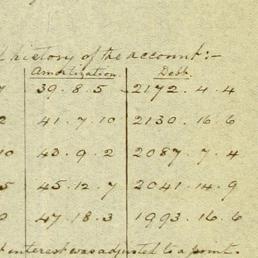 history of the account:-
Amortization Debt.
7 39.8.5 2172.4.4
2 41.7.10 2130.16.6
10 43.9.2 2087.7.4
5 45.12.7 2041.14.9
0 47.18.3 1993.16.6
interest was adjusted to a point.